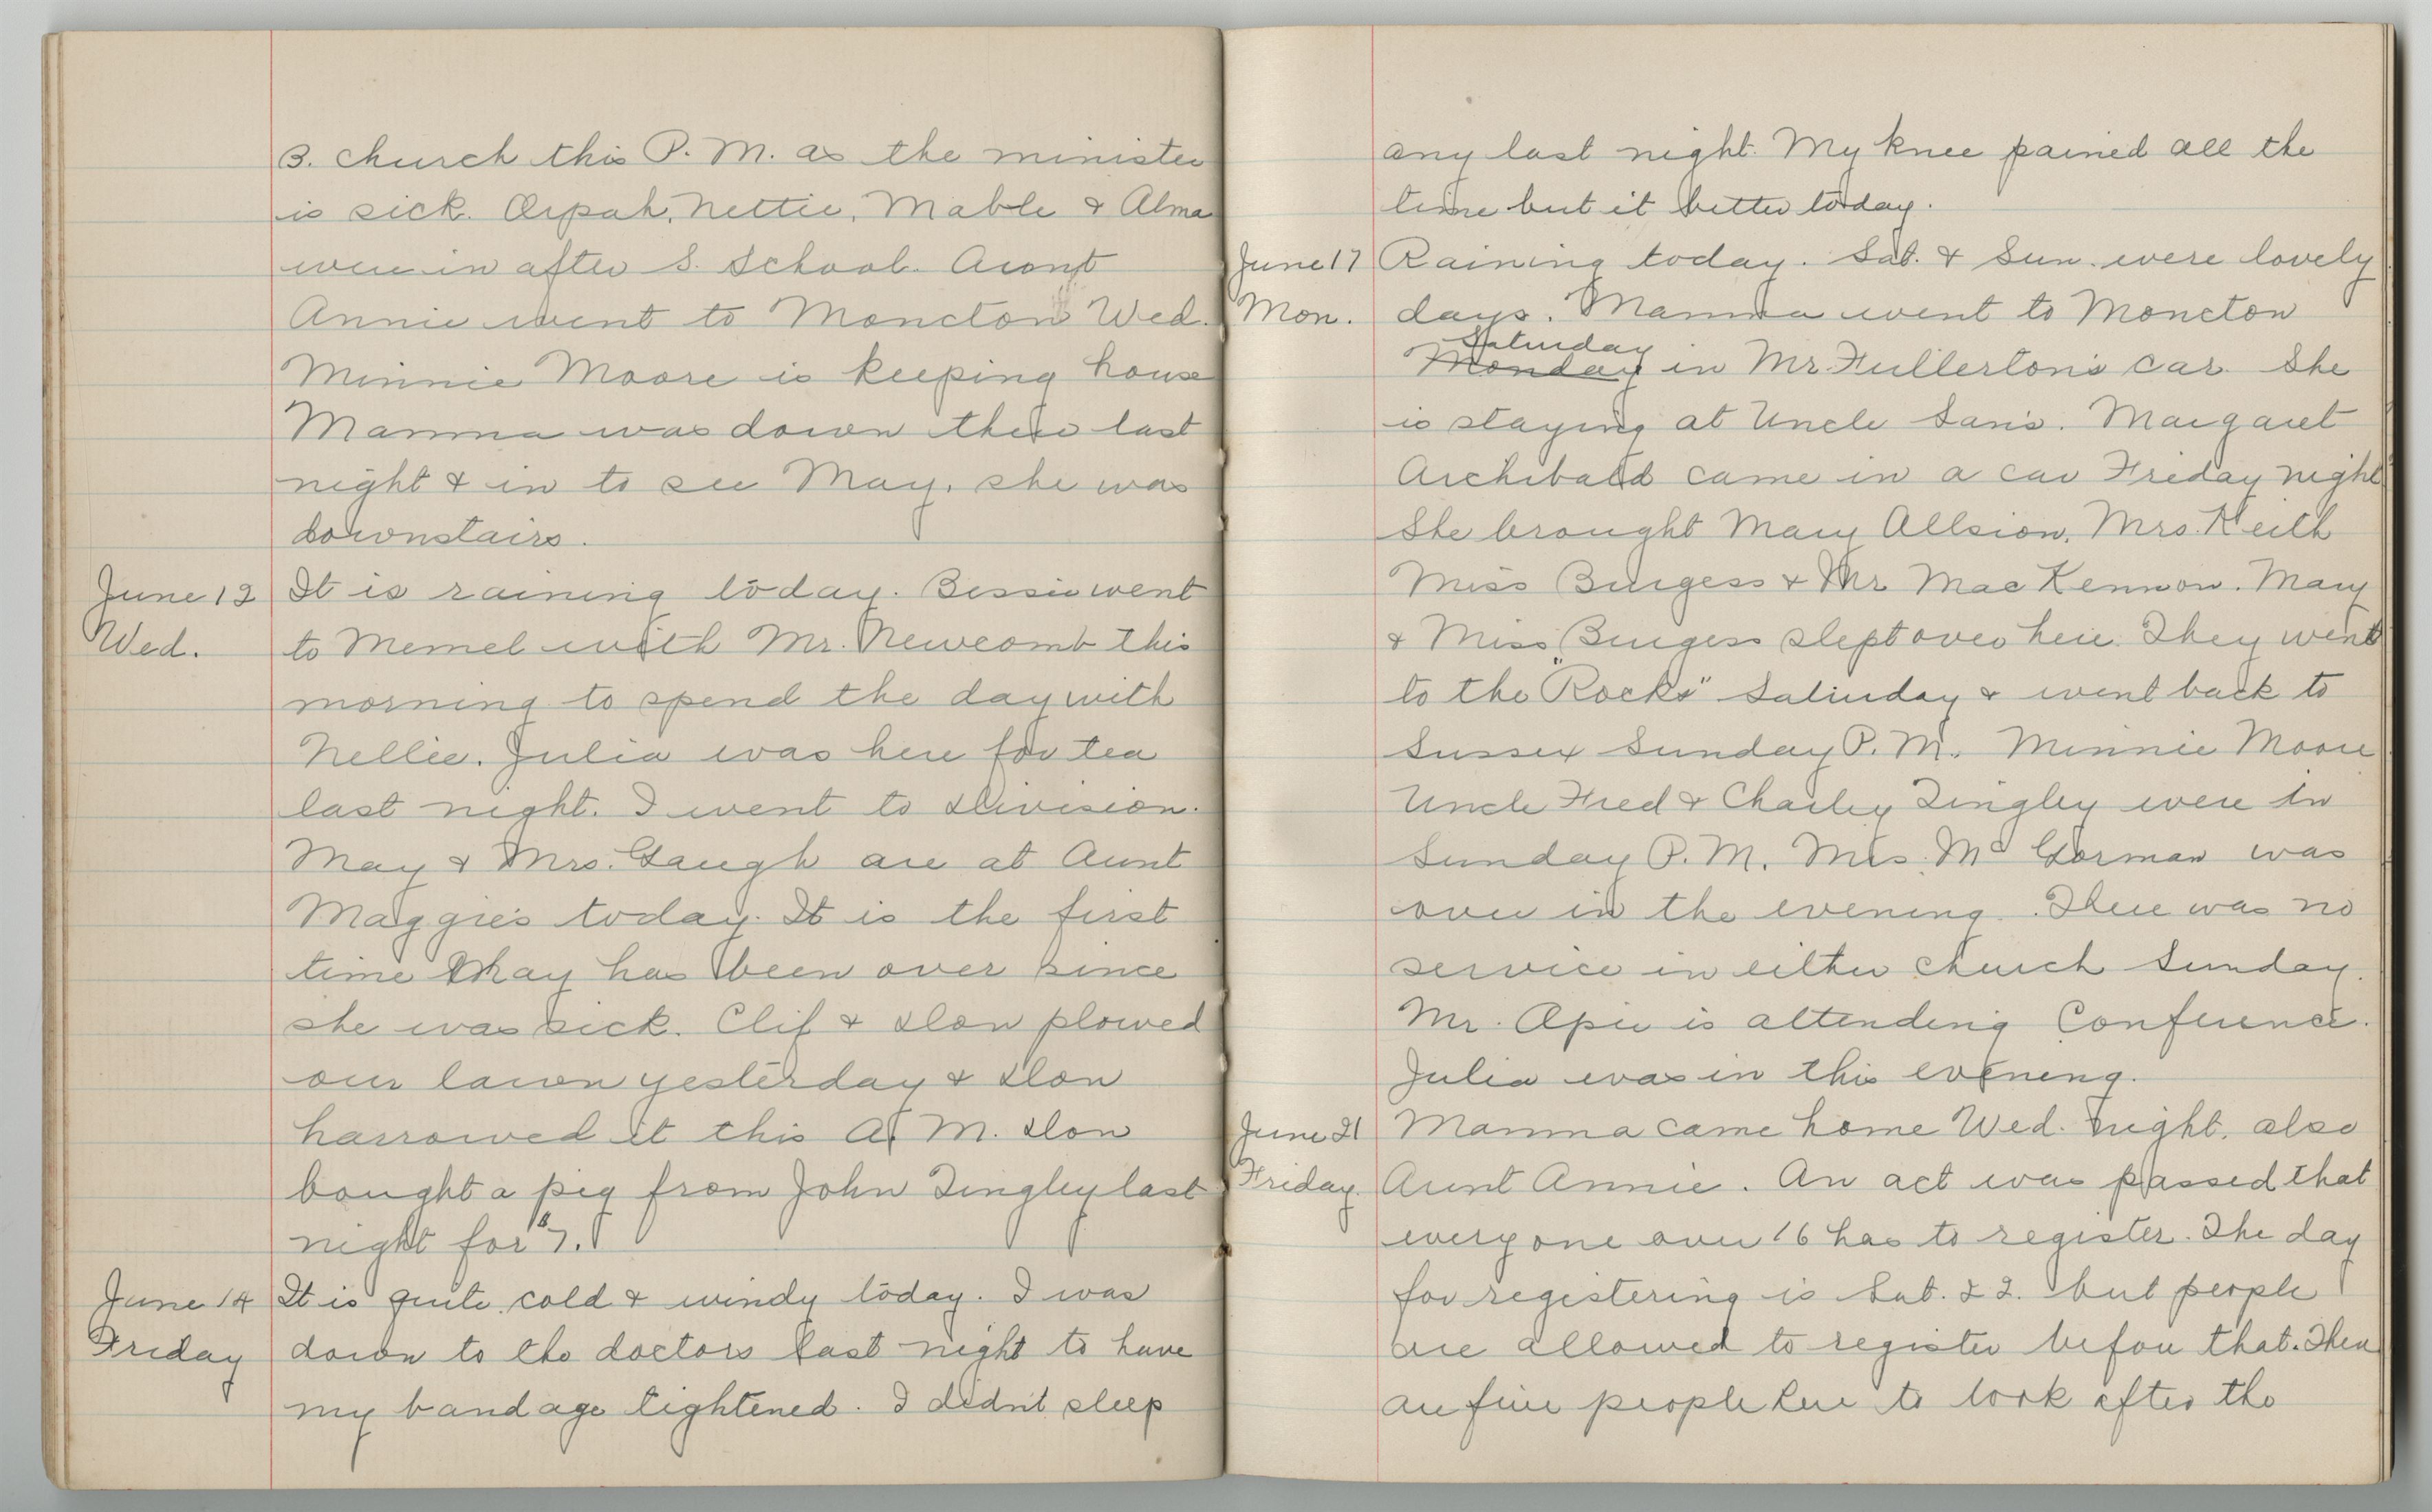 B. church this P. M. as the minister
is sick. Orpah, Nettie, Mable & Alma
were in after S. School. Aront
Annie went to Moncton Wed.
Minnie Moore is keeping house
Mamma was down there last
night & in to see May, she was
downstairs.
June 12 It is raining today. Bessie went
Wed. to Memel with Mr. Newcomb this
morning to spend the day with
Nellie. Julia was here for tea
last night. I went to Division.
May & Mrs. Gaugh are at Aunt
Maggie's today. It is the first
time May has been over since
she was sick. Clif & Don plowed
our lawn yesterday & Don
harrowed it this A. M. Don
bought a pig from John Tingley last
night for $7.
June 14 It is quite cold & windy today. I was
Friday down to the doctors last night to have
my bandage tightened. I didn't sleep
any last night. My knee pained all the
time but it better today.
June 17 Raining today. Sat. & Sun. were lovely
Mon. days. Mamma went to Moncton
Saturday
Monday in Mr. Fullerton's car. She
is staying at Uncle San's. Margaret
Archibald came in a car Friday night
She brought Mary Allsion, Mrs. Keith
Miss Burgess & Mr MacKennon. Mary
& Miss Burgess slept over here. They went
to the "Rocks" Saturday & went back to
Sussex Sunday P. M. Minnie Moore
Uncle Fred & Charley Tingley were in
Sunday P. M. Mrs. Mc Gorman was
over in the evening. There was no
service in either church Sunday.
Mr. Apee is attending Conference.
Julia was in this evening.
June 21 Mamma came home Wed. night, also
Friday. Aunt Annie. An act was passed that
every one over 16 has to register. The day
for registering is Sat. 22. but people
are allowed to register before that. There
are five people here to look after the